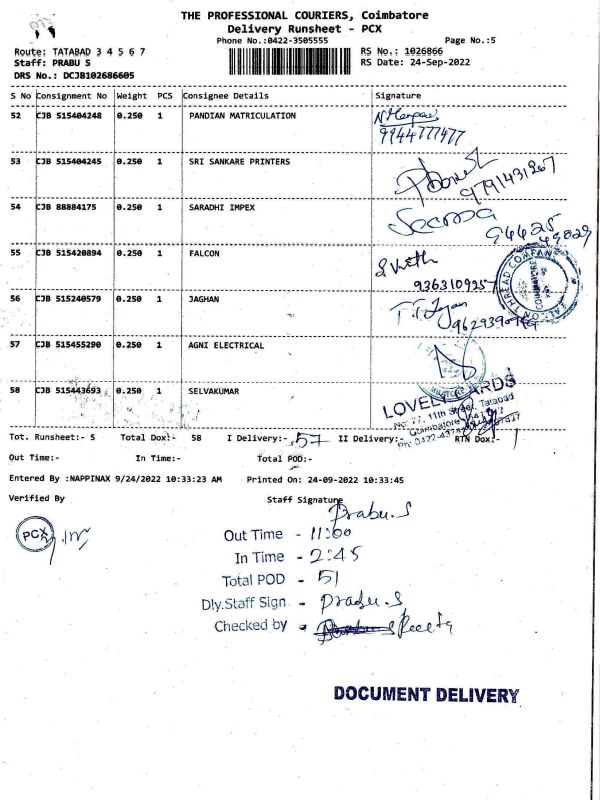 THE PROFESSIONAL COURIERS, Coimbatore
Delivery Runsheet - PCX
Phone No.:0422-3505555
Page No.:5
Route: TATABAD 3 4 5 6 7
RS No.: 1026866
Staff: PRABU S
RS Date: 24-Sep-2022
DRS No.: DCJB102686605
S No Consignment No Weight PCS Consignee Details Signature
52 CJB 515404248 0.250 1 PANDIAN MATRICULATION
9944777477
53 CJB 515404245 0.250 1 SRI SANKARE PRINTERS
9791431267
54 CJB 88884175 0.250 1 SARADHI IMPEX
94425
49029
55 CJB 515420894 0.250 1 FALCON
9363109257
FALCON THREAD COMPANY
COIMBATORE
56 CJB 515240579 0.250 1 JAGHAN
57 CJB 515455290 0.250 1 AGNI ELECTRICAL
58 CJB 515443693 0.250 1 SELVAKUMAR
LOVELY CARDS
No: 77, 11th Street, Tatabad
Coimbatore
Ph: 0422-
Tot. Runsheet:- 5 Total Dox:- 58 I Delivery:- 57 II Delivery:- RTN Dox:- 1
Out Time:- In Time:- Total POD:-
Entered By :NAPPINAX 9/24/2022 10:33:23 AM Printed On: 24-09-2022 10:33:45
Verified By Staff Signature
Prabu.S
PCX
Out Time - 11:00
In Time - 2:45
Total POD - 51
Dly.Staff Sign - Prabu.S
Checked by -
DOCUMENT DELIVERY